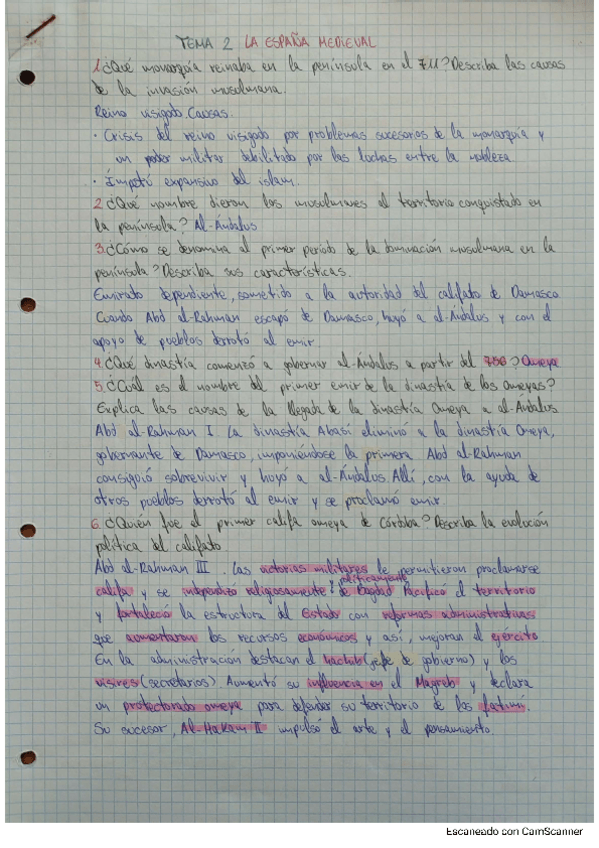 TEMA 2 LA ESPAÑA MEDIEVAL
1. ¿Qué monarquía reinaba en la península en el 711? Describa las causas
de la invasión musulmana.
Reino visigodo. Causas.
· Crisis del reino visigodo por problemas sucesorios de la monarquía y
un poder militar debilitado por las luchas entre la nobleza
· Ímpetu expansivo del islam.
2. ¿Qué nombre dieron los musulmanes al territorio conquistado en
la península? Al-Ándalus
3. ¿Cómo se denomina al primer período de la dominación musulmana en la
península? Describa sus características.
Emirato dependiente, sometido a la autoridad del califato de Damasco
Cuando Abd al-Rahman escapó de Damasco, huyó a al-Ándalus y con el
apoyo de pueblos derrotó al emir
4. ¿Qué dinastía comenzó a gobernar al-Ándalus a partir del 756? Omeya
5. ¿Cuál es el nombre del primer emir de la dinastía de los Omeyas?
Explica las causas de la llegada de la dinastía Omeya a al-Ándalus
Abd al-Rahman I. La dinastía Abasí eliminó a la dinastía Omeya,
gobernante de Damasco, imponiéndose la primera Abd al-Rahman
consiguió sobrevivir y huyó a al-Ándalus. Allí, con la ayuda de
otros pueblos derrotó al emir y se proclamó emir.
6. ¿Quién fue el primer califa omeya de Córdoba? Describa la evolución
política del califato
Abd al-Rahman III. Las victorias militares le permitieron proclamarse
califa y se independizó religiosamente y políticamente de Bagdad Pacificó el territorio
y fortaleció la estructura del Estado con reformas administrativas
que aumentaron los recursos económicos y así, mejoran el ejército
En la administración destacan el hachib (jefe de gobierno) y los
visires (secretarios) Aumentó su influencia en el Magreb y declara
un protectorado omeya para defender su territorio de los fatimí.
Su sucesor, Al-Hakam II impulsó el arte y el pensamiento.
Escaneado con CamScanner